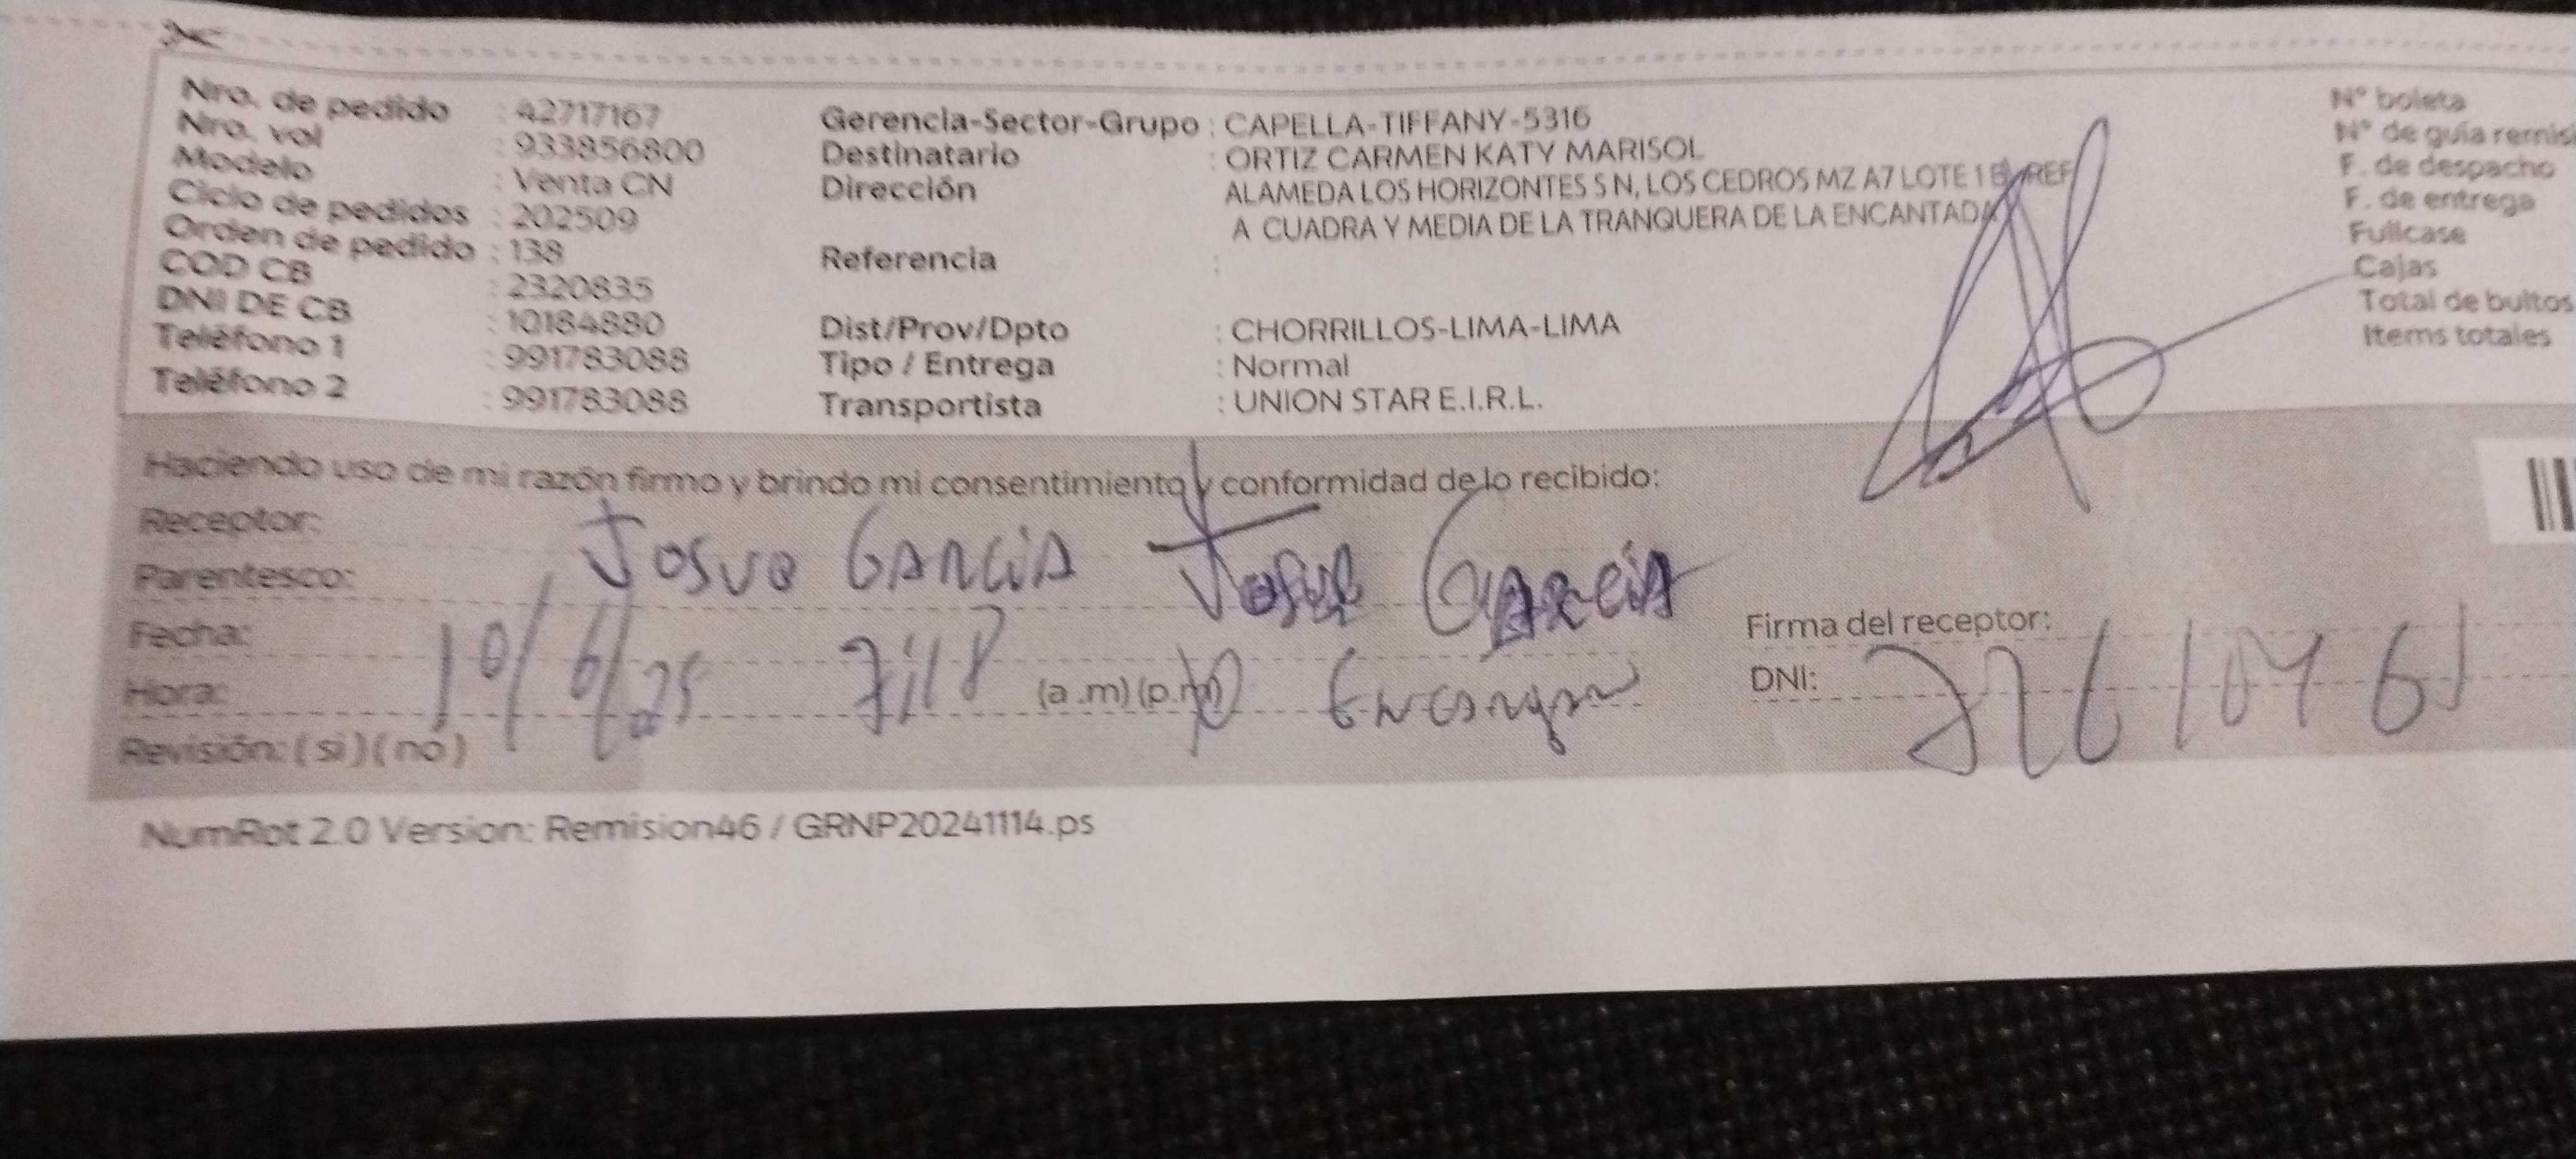 Nro. de pedido : 42717167
Nro. vol : 933856800
Modelo : Venta CN
Ciclo de pedidos : 202509
Orden de pedido : 138
COD CB : 2320835
DNI DE CB : 10184880
Teléfono 1 : 991783088
Teléfono 2 : 991783088
Gerencia-Sector-Grupo : CAPELLA-TIFFANY-5316
Destinatario : ORTIZ CARMEN KATY MARISOL
Dirección ALAMEDA LOS HORIZONTES S N, LOS CEDROS MZ A7 LOTE 1 REF
A CUADRA Y MEDIA DE LA TRANQUERA DE LA ENCANTADA
Referencia :
Dist/Prov/Dpto : CHORRILLOS-LIMA-LIMA
Tipo / Entrega : Normal
Transportista : UNION STAR E.I.R.L.
N° boleta
N° de guía remis
F. de despacho
F. de entrega
Fullcase
Cajas
Total de bultos
Items totales
Haciendo uso de mi razón firmo y brindo mi consentimiento y conformidad de lo recibido:
Receptor: Josue GARCIA Josue GARCIA
Parentesco:
Fecha: 10/6/25
Hora: 7:18 (a .m) (p.m)
Revisión: ( si ) ( no )
Firma del receptor:
DNI:
NumRot 2.0 Version: Remision46 / GRNP20241114.ps